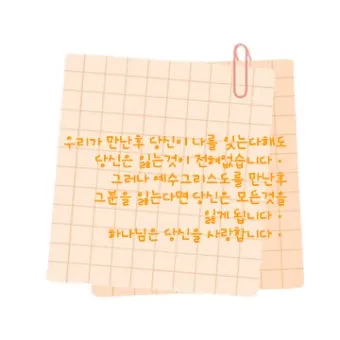 우리가 만난후 당신이 나를 잊는다해도
당신은 잃는것이 전혀없습니다.
그러나 예수그리스도를 만난후
그분을 잃는다면 당신은 모든것을
잃게 됩니다.
하나님은 당신을 사랑합니다.